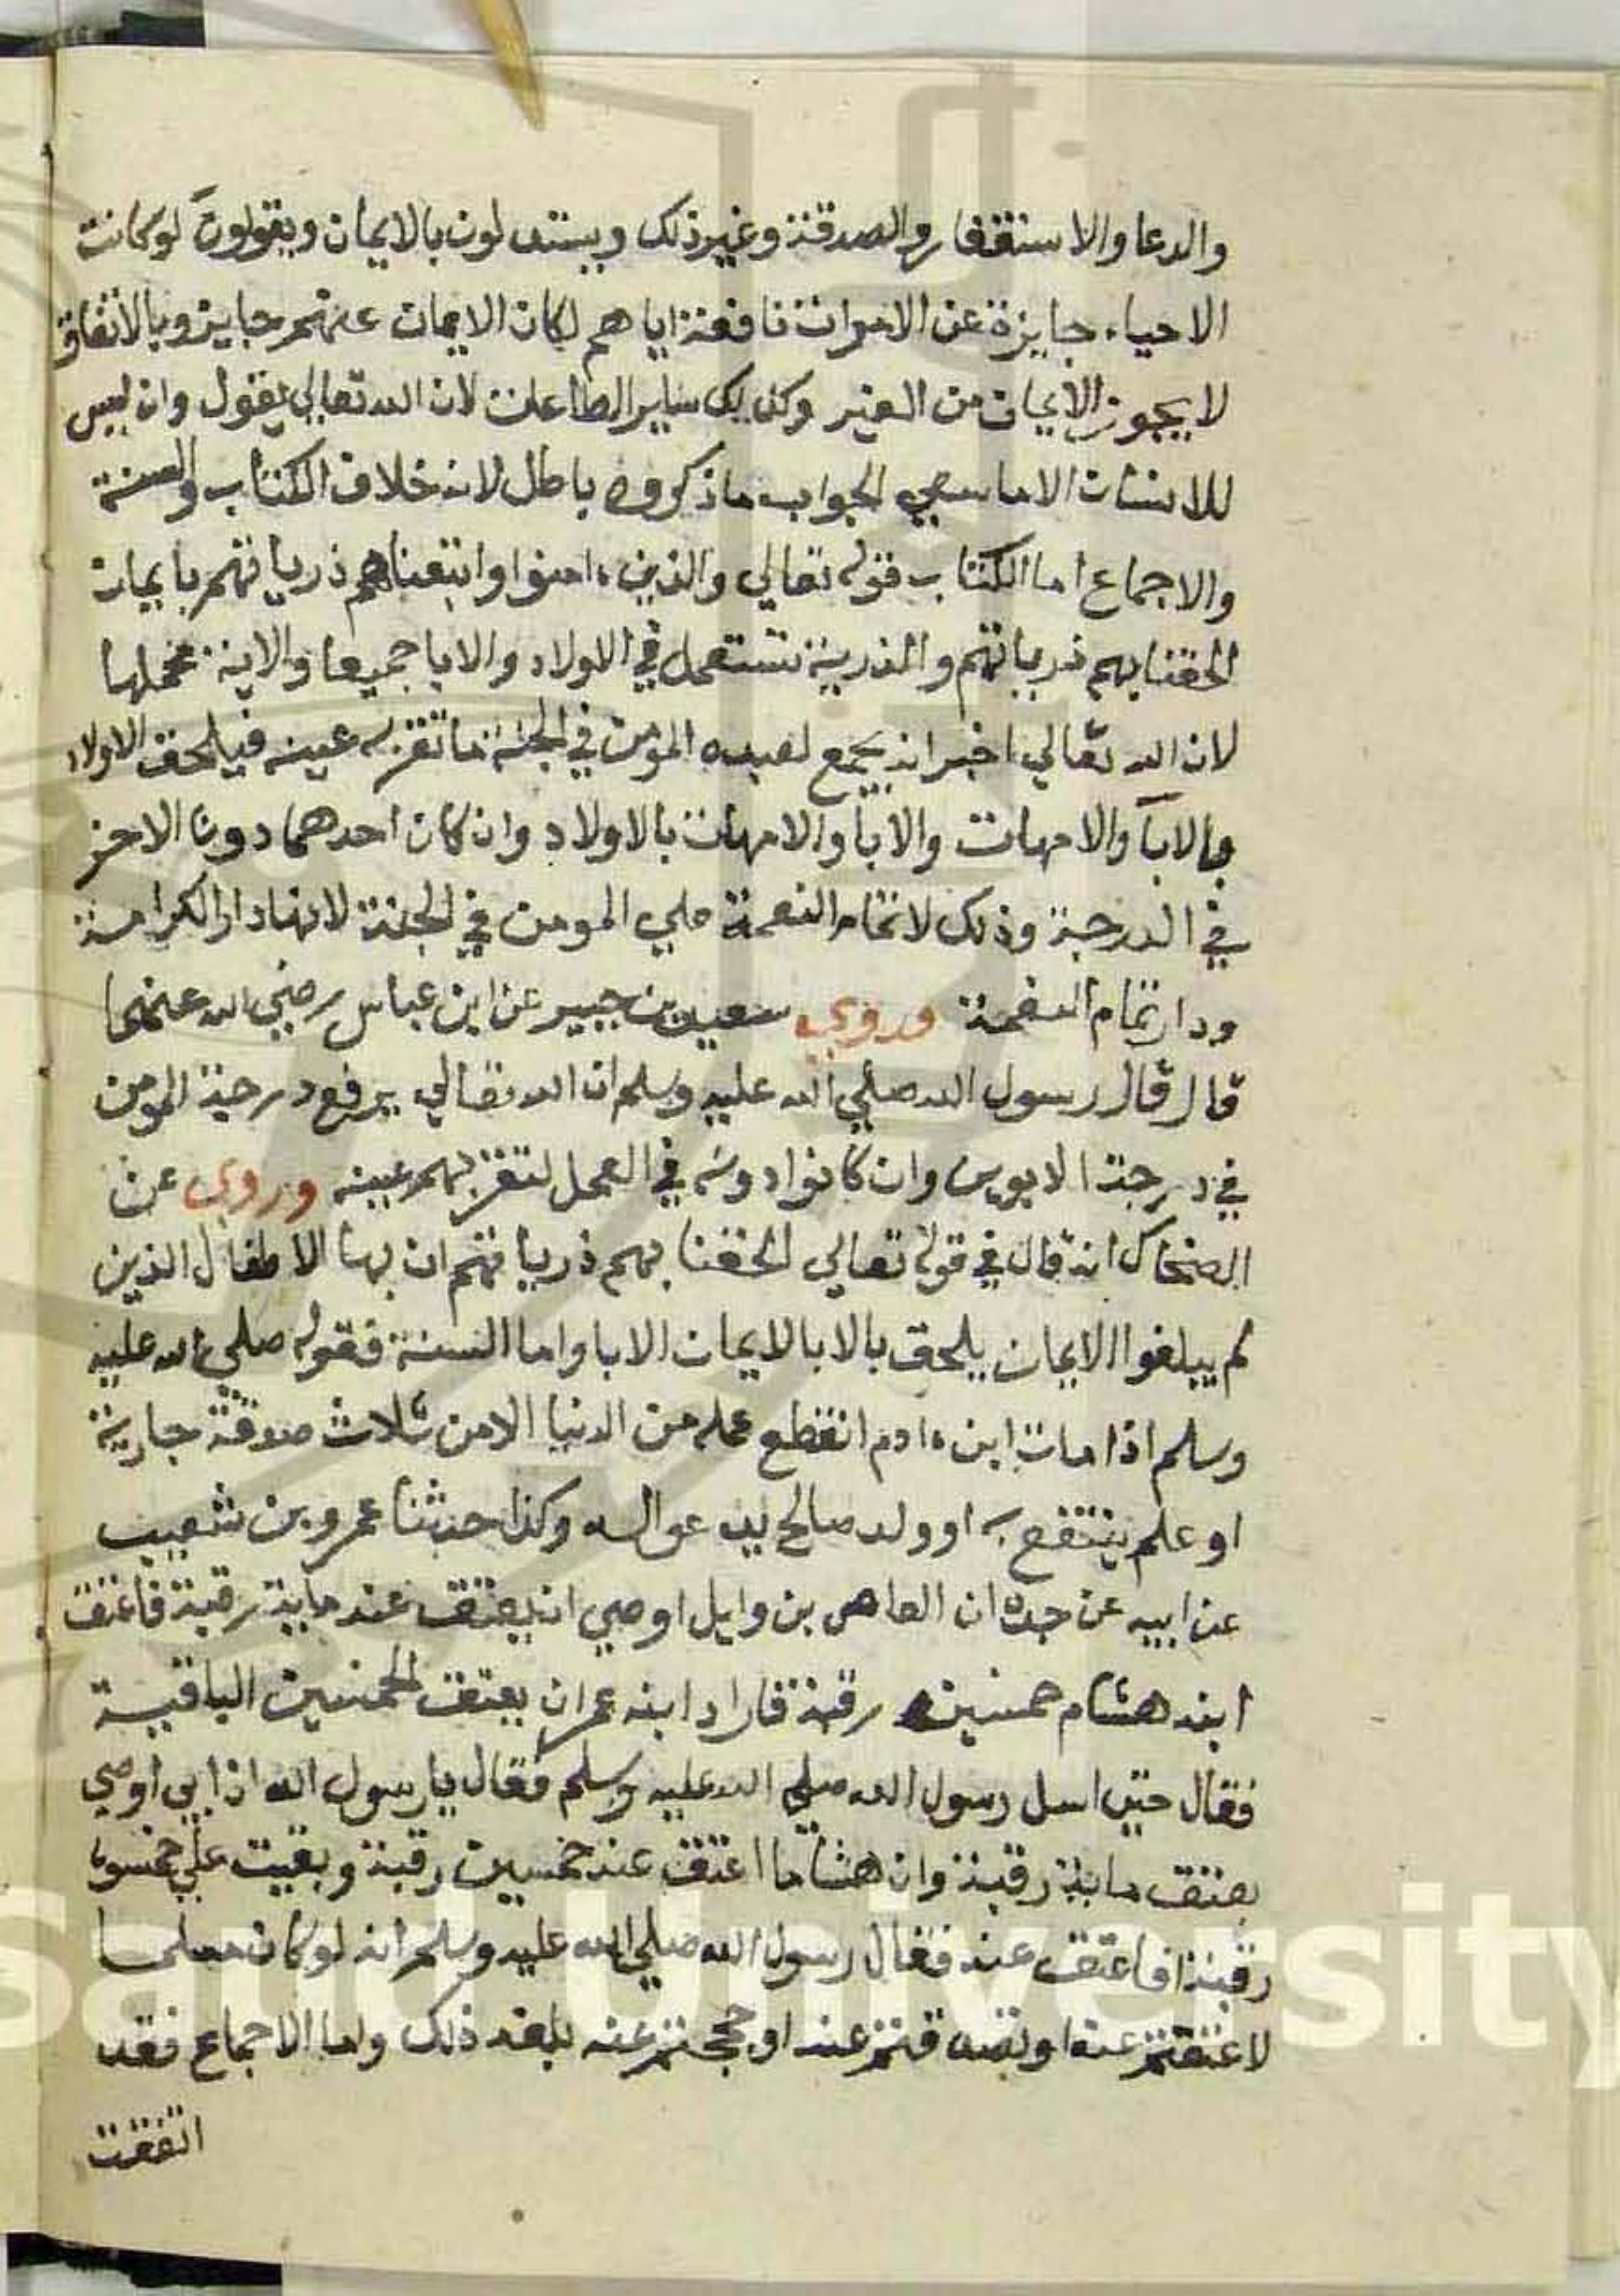 والدعا والاستغفار والصدقة وغير ذلك ويستدلون بالايمان ويقولون لو كانت
الاحياء جايزة عن الاموات نافعة اياهم لكان الايمان عنهم جايز وبالاتفاق
لا يجوز الايمان من الغير وكذلك ساير الطاعات لان الله تعالي يقول وان ليس
للانسان الا ما سعي الجواب ما ذكروه باطل لانه خلاف الكتاب والسنة
والاجماع اما الكتاب قوله تعالي والذين ءامنوا واتبعناهم ذرياتهم بايمان
الحقنا بهم ذرياتهم والذرية تستعمل في الاولاد والابا جميعا والاية محملها
لان الله تعالي اخبر انه يجمع لعبده المومن في الجنة ما تقر به عينه فيلحق الاولاد
بالابآ والامهات والابآ والامهات بالاولاد وان كان احدهما دون الاخر
في الدرجة وذلك لاتمام النعمة علي المومن في الجنة لانها دار الكرامة
ودار تمام النعمة وروي سعيد بن جبير عن ابن عباس رضي الله عنهما
قال قال رسول الله صلي الله عليه وسلم ان الله تعالي يرفع درجة المومن
في درجة الابوين وان كانوا دونه في العمل لتقر بهم عينه وروي عن
الضحاك انه قال في قوله تعالي الحقنا بهم ذرياتهم ان بهنا الاطفال الذين
لم يبلغوا الايمان يلحق بالابا لايمان الابا واما السنة فقوله صلي الله عليه
وسلم اذا مات ابن ءادم انقطع عمله من الدنيا الا من ثلاث صدقة جارية
او علم ينتفع به او ولد صالح يدعوا له وكذا حدثنا عمرو بن شعيب
عن ابيه عن جده ان العاص بن وايل اوصي ان يعتق عنه ماية رقبة فاعتق
ابنه هشام خمسين رقبة فاراد ابنه عمر ان يعتق الخمسين الباقية
فقال حتى اسل رسول الله صلي الله عليه وسلم فقال يا رسول الله ان ابي اوصي
بعتق ماية رقبة وان هشاما اعتق عنه خمسين رقبة وبقيت علي خمسون
رقبة افاعتق عنه فقال رسول الله صلي الله عليه وسلم انه لو كان مسلما
لاعتقتم عنه او تصدقتم عنه او حججتم عنه بلغه ذلك واما الاجماع فقد
اتفقت